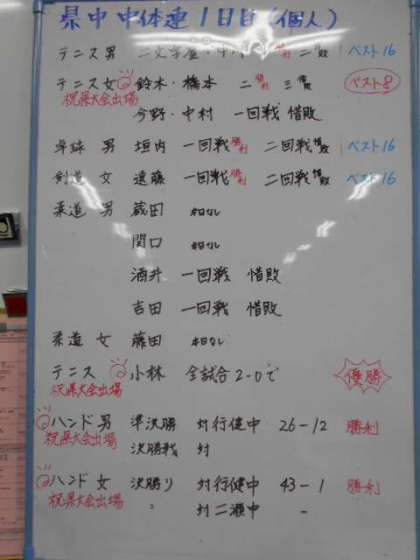 県中 中体連 1日目 (個人)
テニス男 二 ベスト16
テニス女 鈴木・橋本 二 勝利 三 惜敗 ベスト8
祝県大会出場
今野・中村 一回戦 惜敗
卓球 男 垣内 一回戦 勝利 二回戦 惜敗 ベスト16
剣道 女 遠藤 一回戦 勝利 二回戦 惜敗 ベスト16
柔道 男 蔵田 本日なし
関口 本日なし
酒井 一回戦 惜敗
吉田 一回戦 惜敗
柔道 女 藤田 本日なし
テニス 小林 全試合2-0で 優勝
祝県大会出場
ハンド 男 準決勝 対行健中 26-12 勝利
祝県大会出場 決勝戦 対
ハンド 女 決勝リ 対行健中 43-1 勝利
祝県大会出場 〃 対二瀬中 -